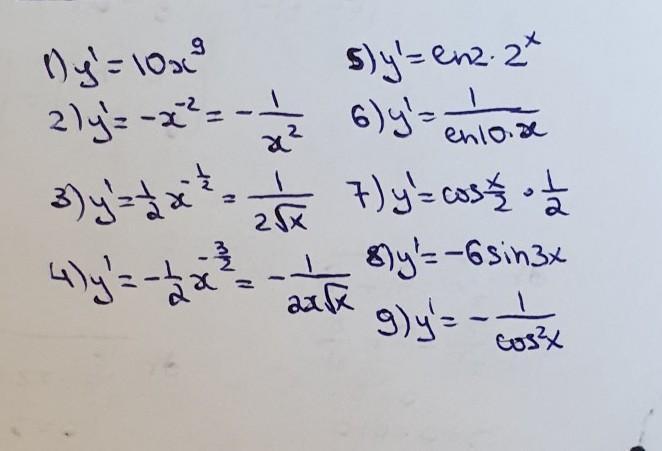 1) y' = 10x⁹
2) y' = -x⁻² = - 1/x²
3) y' = 1/2 x^(-1/2) = 1/(2√x)
4) y' = - 1/2 x^(-3/2) = - 1/(2x√x)
5) y' = ln2 · 2ˣ
6) y' = 1/(ln10·x)
7) y' = cos x/2 · 1/2
8) y' = -6 sin3x
9) y' = - 1/cos²x